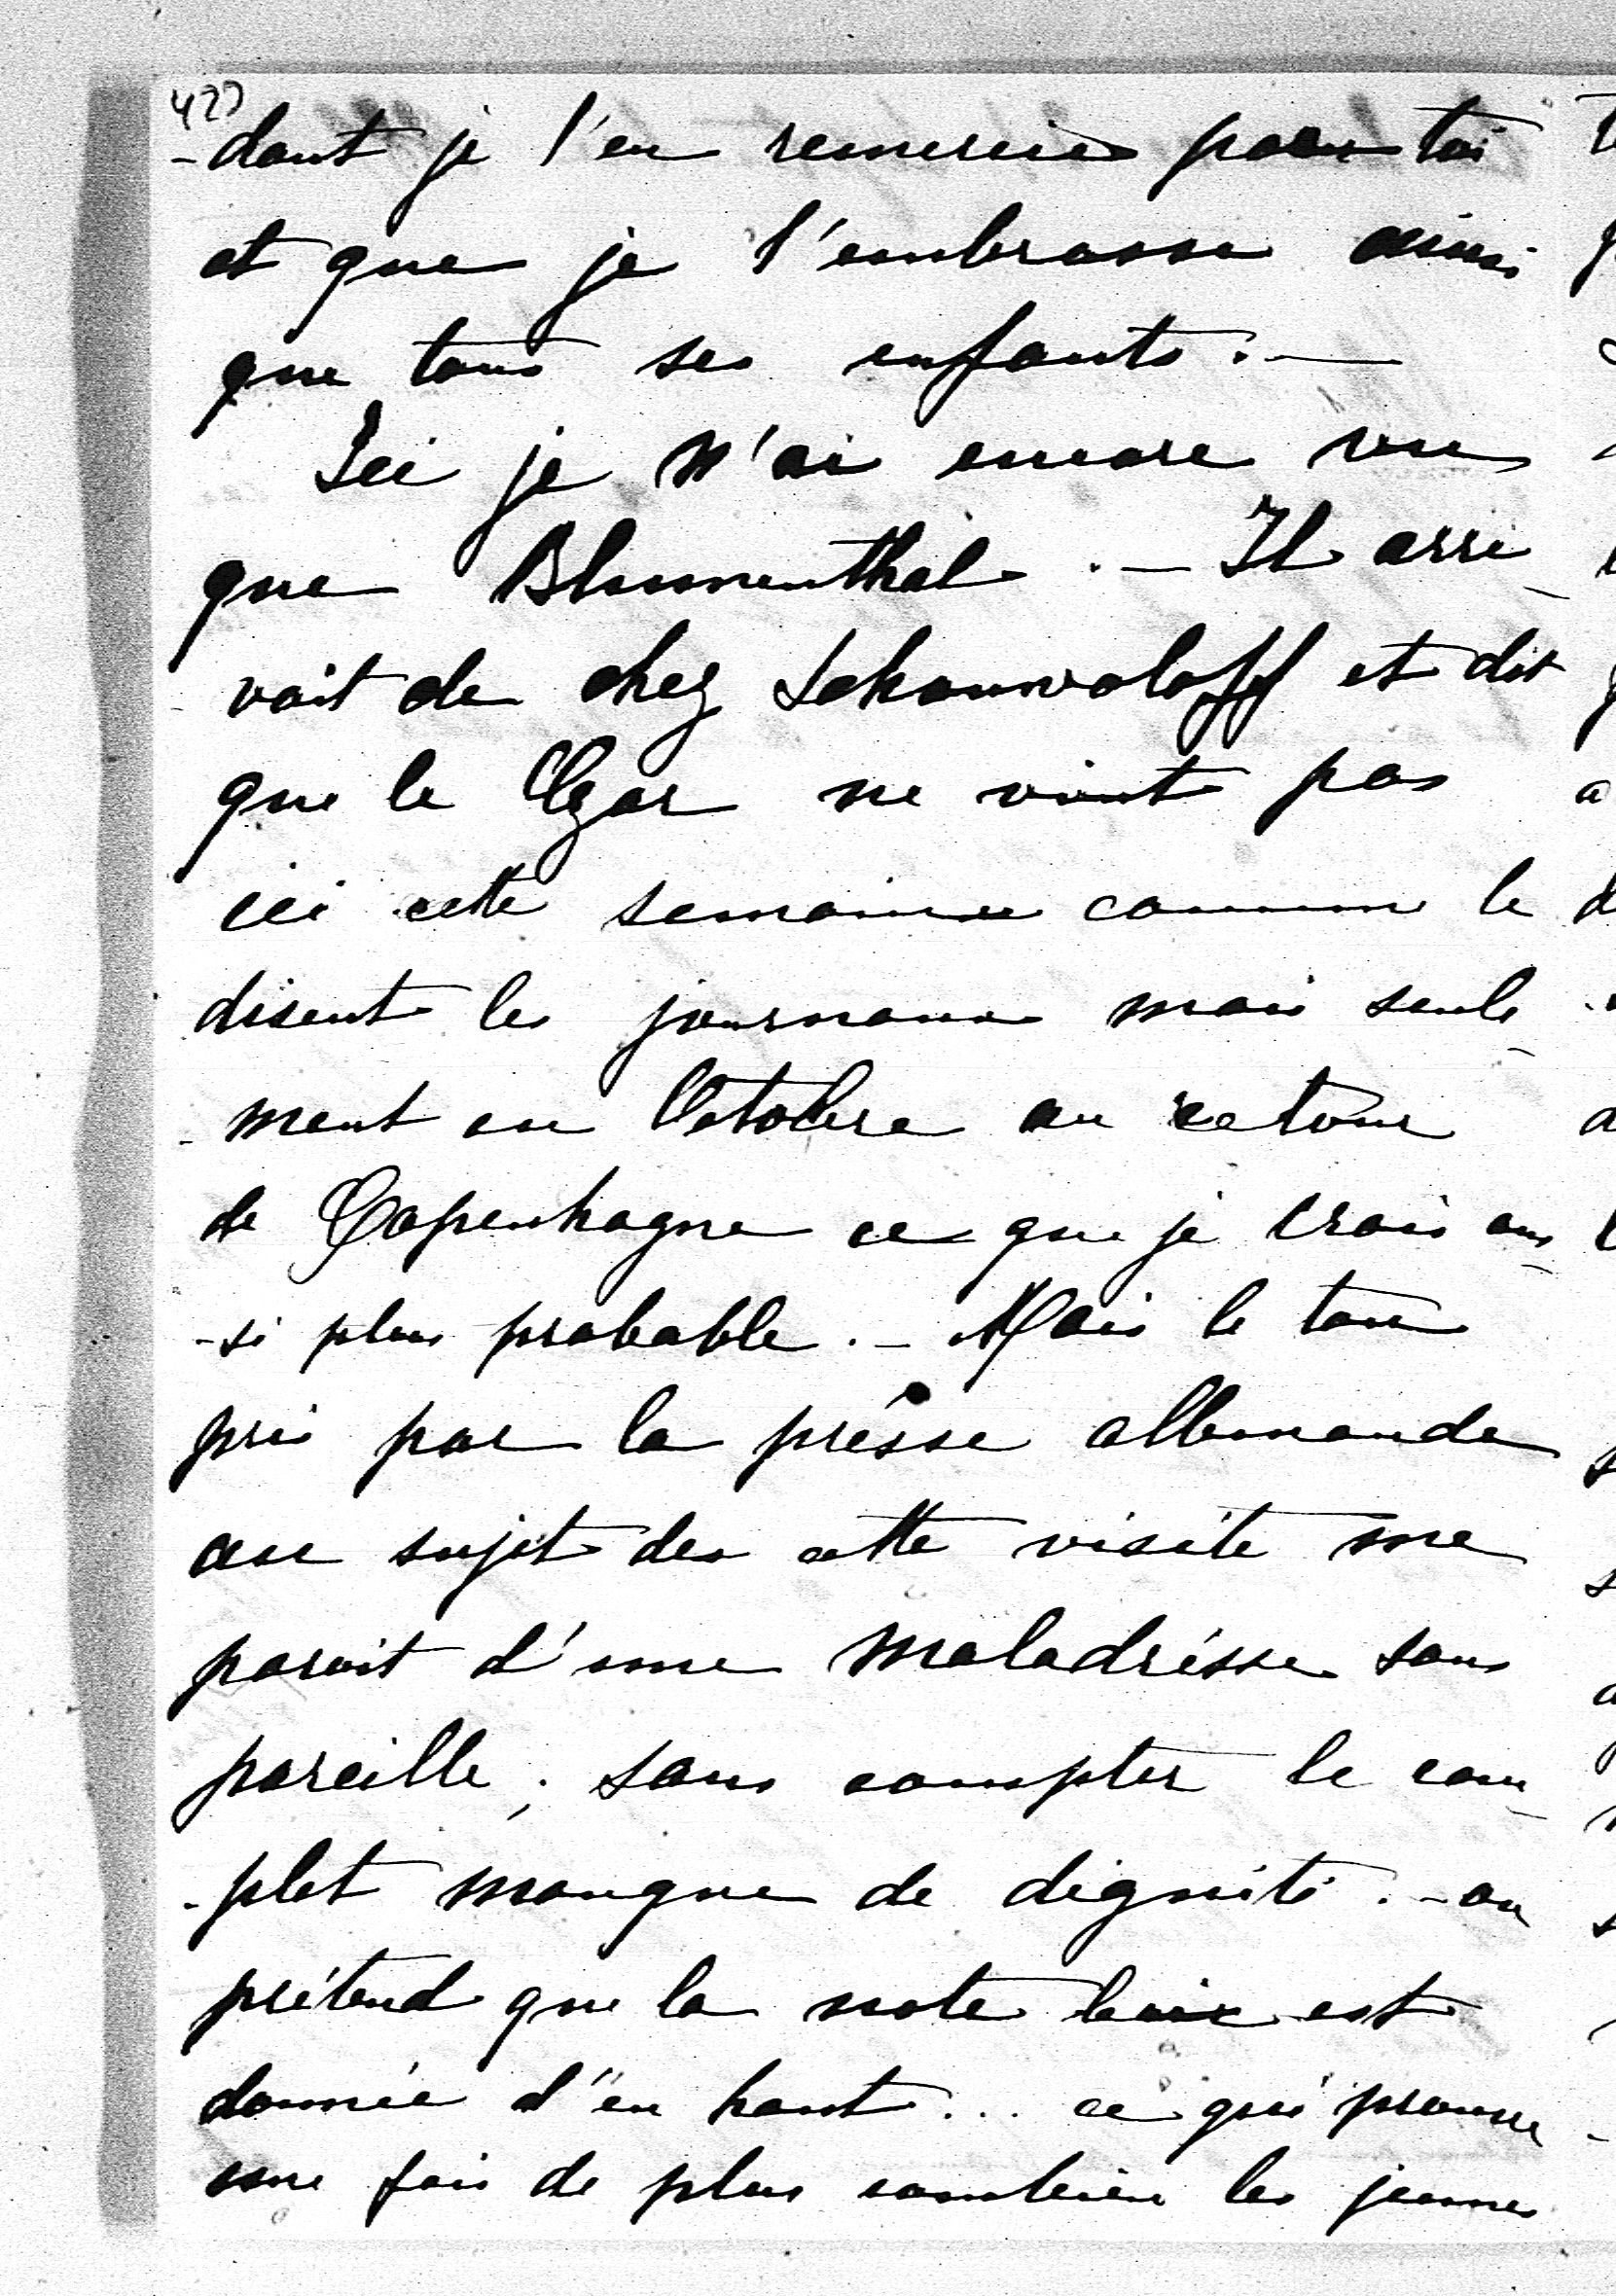 422
-dant je l'en remercie pour toi
et que je l'embrasse ainsi
que tous ses enfants. —
Ici je n'ai encore vu
que Blumenthal. — Il arri-
vait de chez Schouvaloff et dit
que le Czar ne vient pas
ici cette semaine comme le
disent les journaux mais seule-
-ment en Octobre au retour
de Copenhagne ce que je crois aus-
-si plus probable. — Mais le ton
pris par la présse allemande
au sujet de cette visite me
parait d'une maladrésse sans
pareille; sans compter le com-
-plet manque de dignité. — on
prétend que la note est
donnée d'en haut... ce qui prouve
une fois de plus combien les jeunes